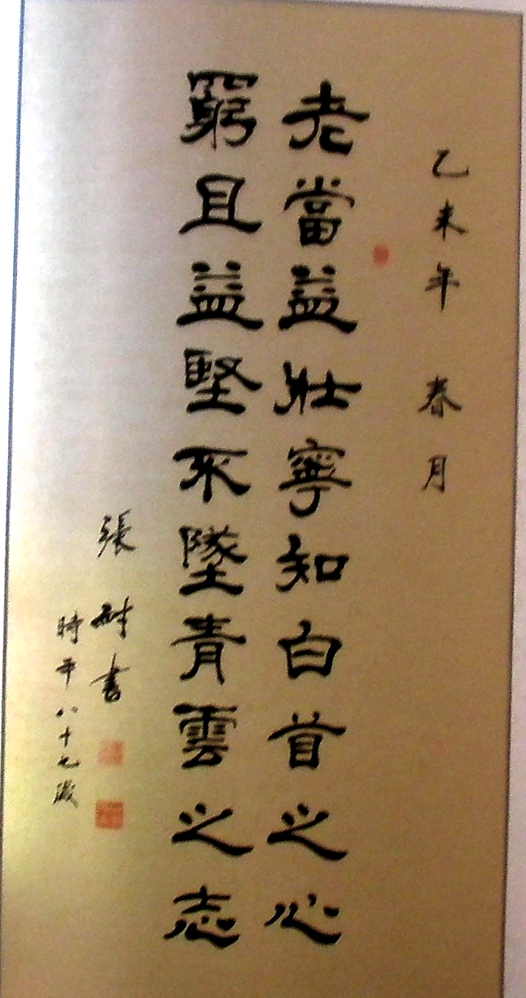 乙未年 春月
老當益壯寧知白首之心
窮且益堅不墜青雲之志
張耐書
時年八十九歲